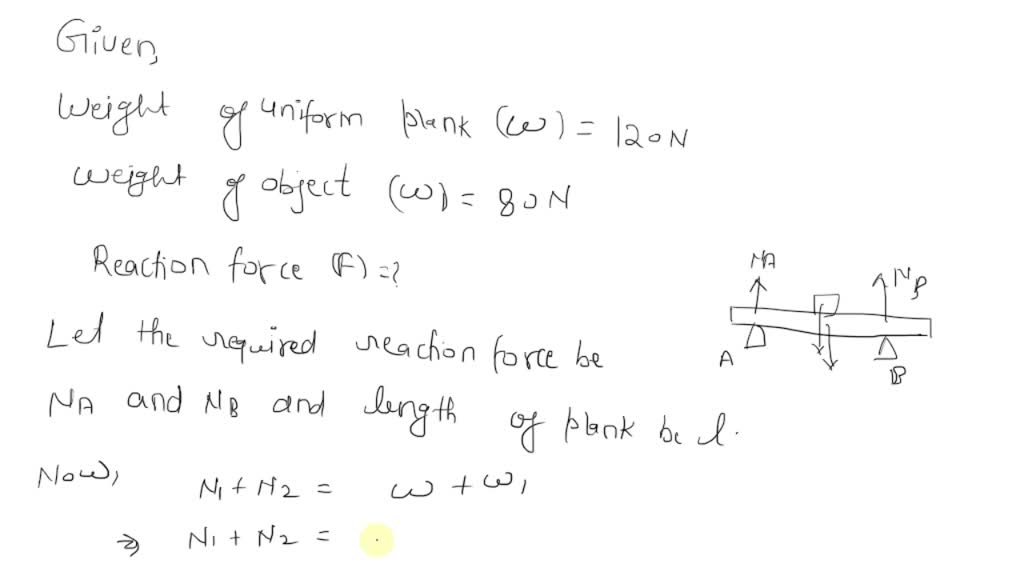 Given,
Weight of uniform plank (ω) = 120N
weight of object (ω) = 80N
Reaction force (F) = ?
NA
NB
A
B
Let the required reaction force be
NA and NB and length of plank be l.
Now,
N1 + N2 = ω + ω1
⇒ N1 + N2 =